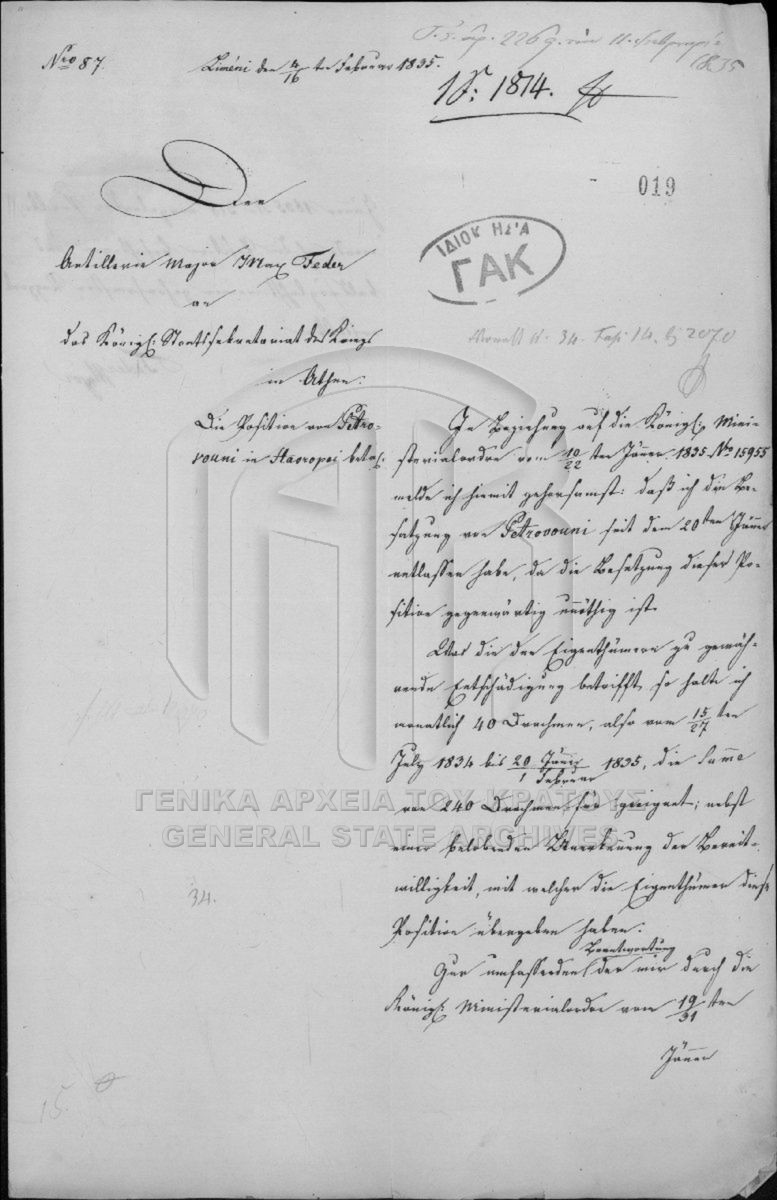 Nro 87.
Liméni den 4/16 ten Februar 1835.
1835
18: 1814.
019
ΓΑΚ
Der
Artillerie Major Max Feder
an
das Königl: Staatssekretariat des Kriegs
in Athen.
Die Position von Petro-
vouni in Stavropei betr:
In Beziehung auf die Königl: Mini-
sterialordre vom 10/22 ten Jänner 1835 No 15955
melde ich hiemit gehorsamst: daß ich die Be-
satzung von Petrovouni seit dem 20ten Jänner
entlassen habe, da die Besetzung dieser Po-
sition gegenwärtig unnöthig ist.
Was die den Eigenthümern zu gewäh-
rende Entschädigung betrifft, so halte ich
monatlich 40 Drachmen, also vom 15/27 ten
July 1834 bis 20 Jäner / 1 Februar 1835, die Summe
von 240 Drachmen für geeignet; nebst
einer belobenden Anerkennung der Bereit-
willigkeit, mit welcher die Eigenthümer diese
Position übergeben haben.
Beantwortung
Zur umfassenden der mir durch die
Königl: Ministerialordre vom 19/31 ten
Jänner
34.
15.
ΓΕΝΙΚΑ ΑΡΧΕΙΑ ΤΟΥ ΚΡΑΤΟΥΣ
GENERAL STATE ARCHIVES